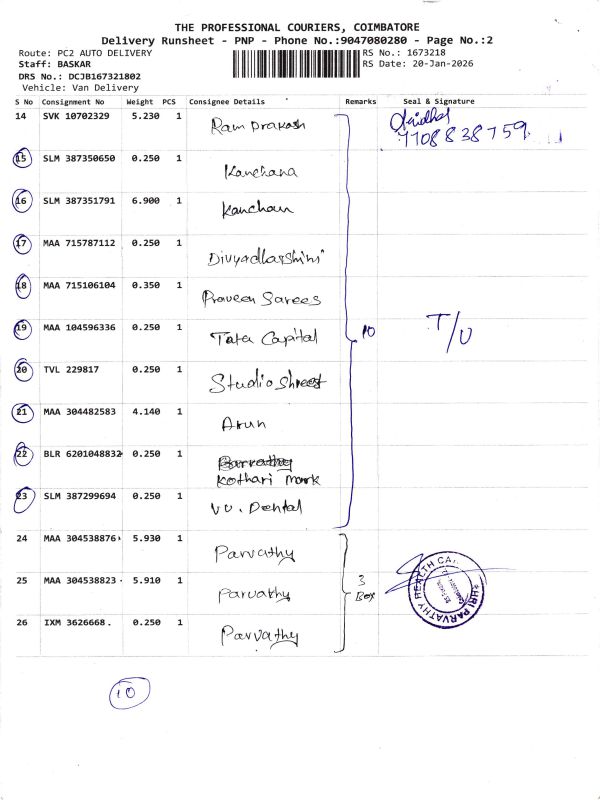 THE PROFESSIONAL COURIERS, COIMBATORE
Delivery Runsheet - PNP - Phone No.:9047080280 - Page No.:2
Route: PC2 AUTO DELIVERY RS No.: 1673218
Staff: BASKAR RS Date: 20-Jan-2026
DRS No.: DCJB167321802
Vehicle: Van Delivery
S No Consignment No Weight PCS Consignee Details Remarks Seal & Signature
14 SVK 10702329 5.230 1 Ram prakash
7708838759
15 SLM 387350650 0.250 1 Kanchana
16 SLM 387351791 6.900 1 Kanchan
17 MAA 715787112 0.250 1 Divyadharshini
18 MAA 715106104 0.350 1 Praveen Sarees
19 MAA 104596336 0.250 1 Tata Capital 10 T/U
20 TVL 229817 0.250 1 Studio Shreet
21 MAA 304482583 4.140 1 Arun
22 BLR 6201048832 0.250 1 Parvathy
Kothari mark
23 SLM 387299694 0.250 1 VV. Dental
24 MAA 304538876 5.930 1 Parvathy
25 MAA 304538823 5.910 1 Parvathy 3 Box
SHRI PARVATHY HEALTH CA
26 IXM 3626668. 0.250 1 Parvathy
10